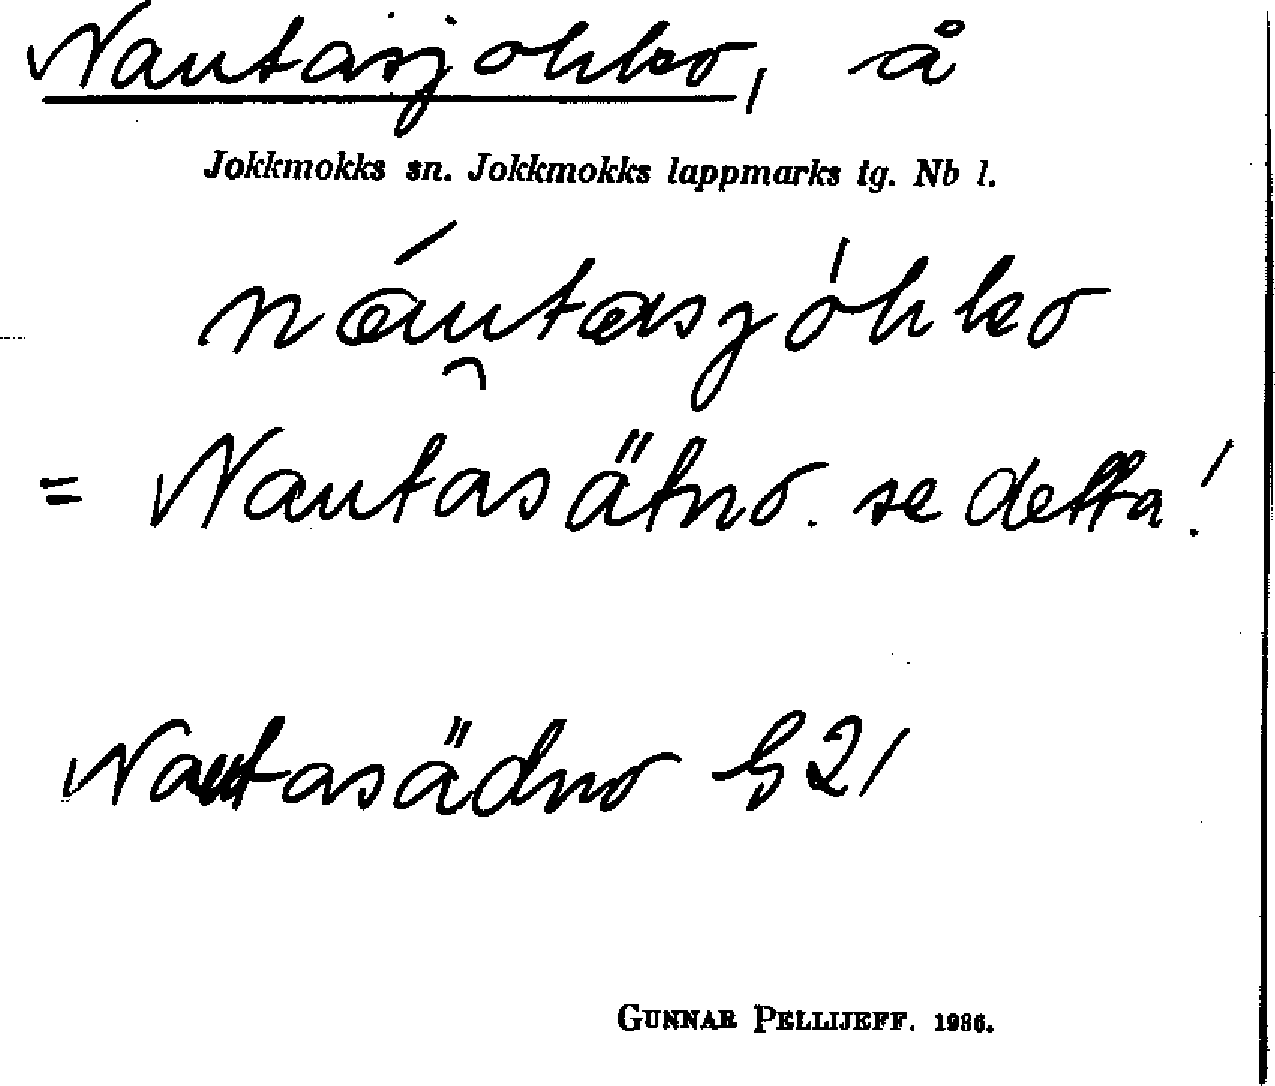 Nautasjohko, å
Jokkmokks sn. Jokkmokks lappmarks tg. Nb l.
náu̯tasjóhko
= Nautasätno. se detta!
Nautasädno h 21
GUNNAR PELLIJEFF. 1986.